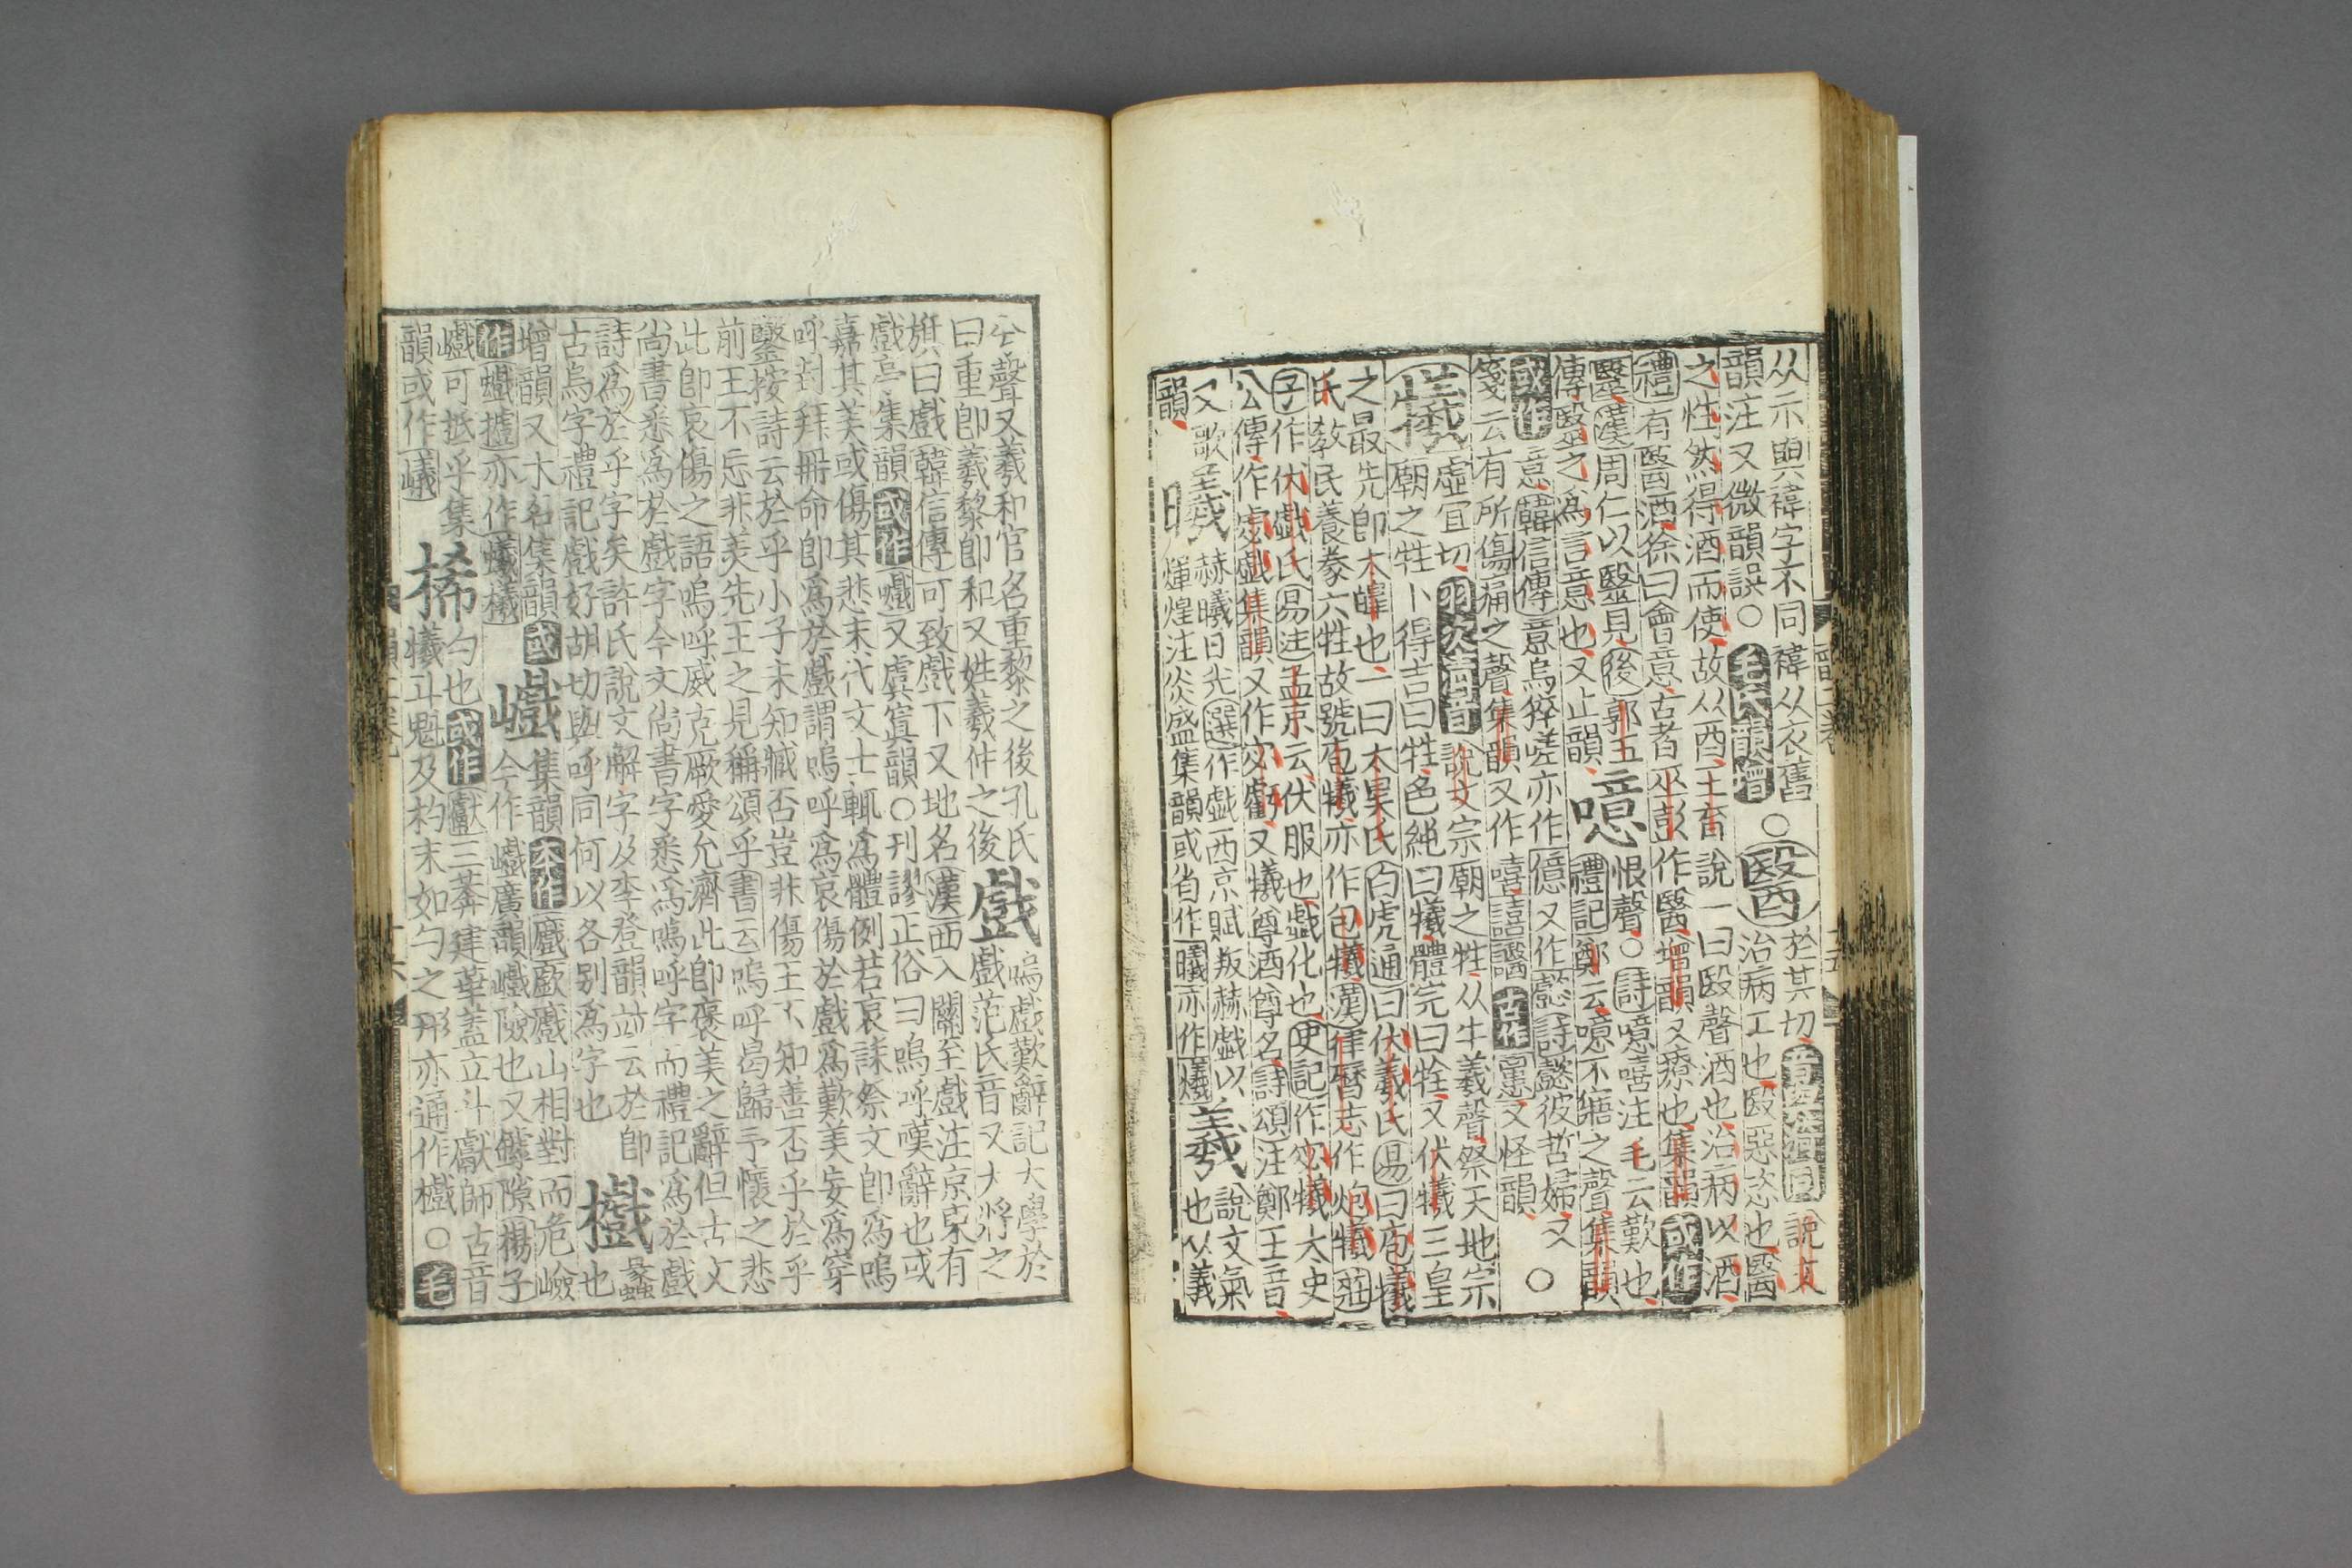 从示與禕字不同禕从衣舊
韻注又微韻誤○毛氏韻增○醫於其切音與漪同說文
治病工也殹惡恣也醫
之性然得酒而使故从酉王育說一曰殹聲酒也治病以酒
禮有醫酒徐曰會意古者巫彭作醫增韻又療也集韻或作
毉漢周仁以毉見後郭玉
傳毉之爲言意也又止韻噫恨聲○詩噫嘻注毛云歎也
禮記鄭云噫不寤之聲集韻
或作意韓信傳意烏猝嗟亦作億又作懿詩懿彼哲婦又○
箋云有所傷痛之聲集韻又作嘻譆譩古作又怪韻
犧虛宜切羽次清音說文宗廟之牲从牛羲聲祭天地宗
廟之牲卜得吉曰牲色純曰犧體完曰牷又伏犧三皇
之最先卽太皞也一曰太昊氏白虎通曰伏羲氏易曰庖犧
氏敎民養豢六牲故號庖犧亦作包犧漢律曆志作炮犧莊
子作伏戲氏易注孟京云伏服也戲化也史記作宓犧太史
公傳作虙戲集韻又作宓虧又犧尊酒尊名詩頌注鄭王音
又歌韻
曦赫曦日光選作戲西京賦叛赫戲以
輝煌注炎盛集韻或省作㬢亦作爔
羲說文氣也从義
兮聲又羲和官名重黎之後孔氏
曰重卽羲黎卽和又姓羲仲之後
戲嗚戲歎辭記大學於
戲范氏音又大將之
旗曰戲韓信傳可致戲下又地名漢西入關至戲注京東有
戲亭集韻或作㰕又虞寘韻○刋謬正俗曰嗚呼嘆辭也或
嘉其美或傷其悲末代文士輒爲體例若哀誄祭文卽爲嗚
呼封拜冊命卽爲於戲謂嗚呼爲哀傷於戲爲歎美妄爲穿
鑿按詩云於乎小子未知臧否豈非傷王不知善否乎於乎
前王不忘非美先王之見稱頌乎書云嗚呼曷歸予懷之悲
此卽哀傷之語嗚呼威克厥愛允濟此卽褒美之辭但古文
尚書悉爲於戲字今文尚書字悉爲嗚呼字而禮記爲於戲
詩爲於乎字矣許氏說文解字及李登韻竝云於卽
古烏字禮記戲好胡切與呼同何以各別爲字也
㰕蠡也
增韻又木名集韻或
作㰕攎亦作蟻檥
巇集韻本作㩍㰕㩍山相對而危險
今作巇廣韻巇險也又罅隙揚子
巇可抵乎集
韻或作㠖
桸勺也或作獻三莽建華蓋立斗獻師古音
犧斗魁及杓末如勺之形亦通作㰕○毛